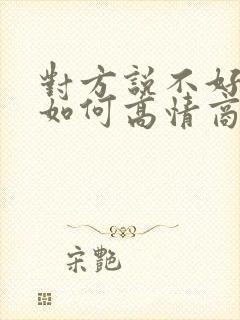 對方說不好
如何高情商
宋艷